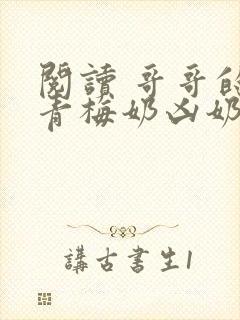 閱讀 哥哥的
青梅奶凶奶
講古書生1